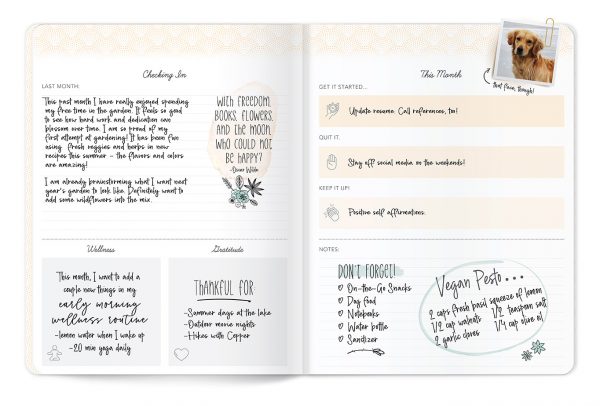 Checking In
LAST MONTH:
This past month I have really enjoyed spending
my free time in the garden. It feels so good
to see how hard work and dedication can
blossom over time. I am so proud of my
first attempt at gardening! It has been fun
using fresh veggies and herbs in new
recipes this summer - the flavors and colors
are amazing!
I am already brainstorming what I want next
year's garden to look like. Definitely want to
add some wildflowers into the mix.
WITH FREEDOM,
BOOKS, FLOWERS,
AND THE MOON,
WHO COULD NOT
BE HAPPY?
-Oscar Wilde
Wellness
This month, I want to add a
couple new things in my
early morning
wellness routine
-lemon water when I wake up
-20 min yoga daily
Gratitude
THANKFUL FOR
-Summer days at the lake
-Outdoor movie nights
-Hikes with Copper
This Month
that face, though!
GET IT STARTED...
Update resume. Call references, too!
QUIT IT.
Stay off social media on the weekends!
KEEP IT UP!
Positive self affirmations.
NOTES:
DON'T FORGET!
On-the-Go Snacks
Dog food
Notepads
Water bottle
Sanitizer
Vegan Pesto...
2 cups fresh basil
1/2 cup walnuts
2 garlic cloves
squeeze of lemon
1/2 teaspoon salt
1/4 cup olive oil